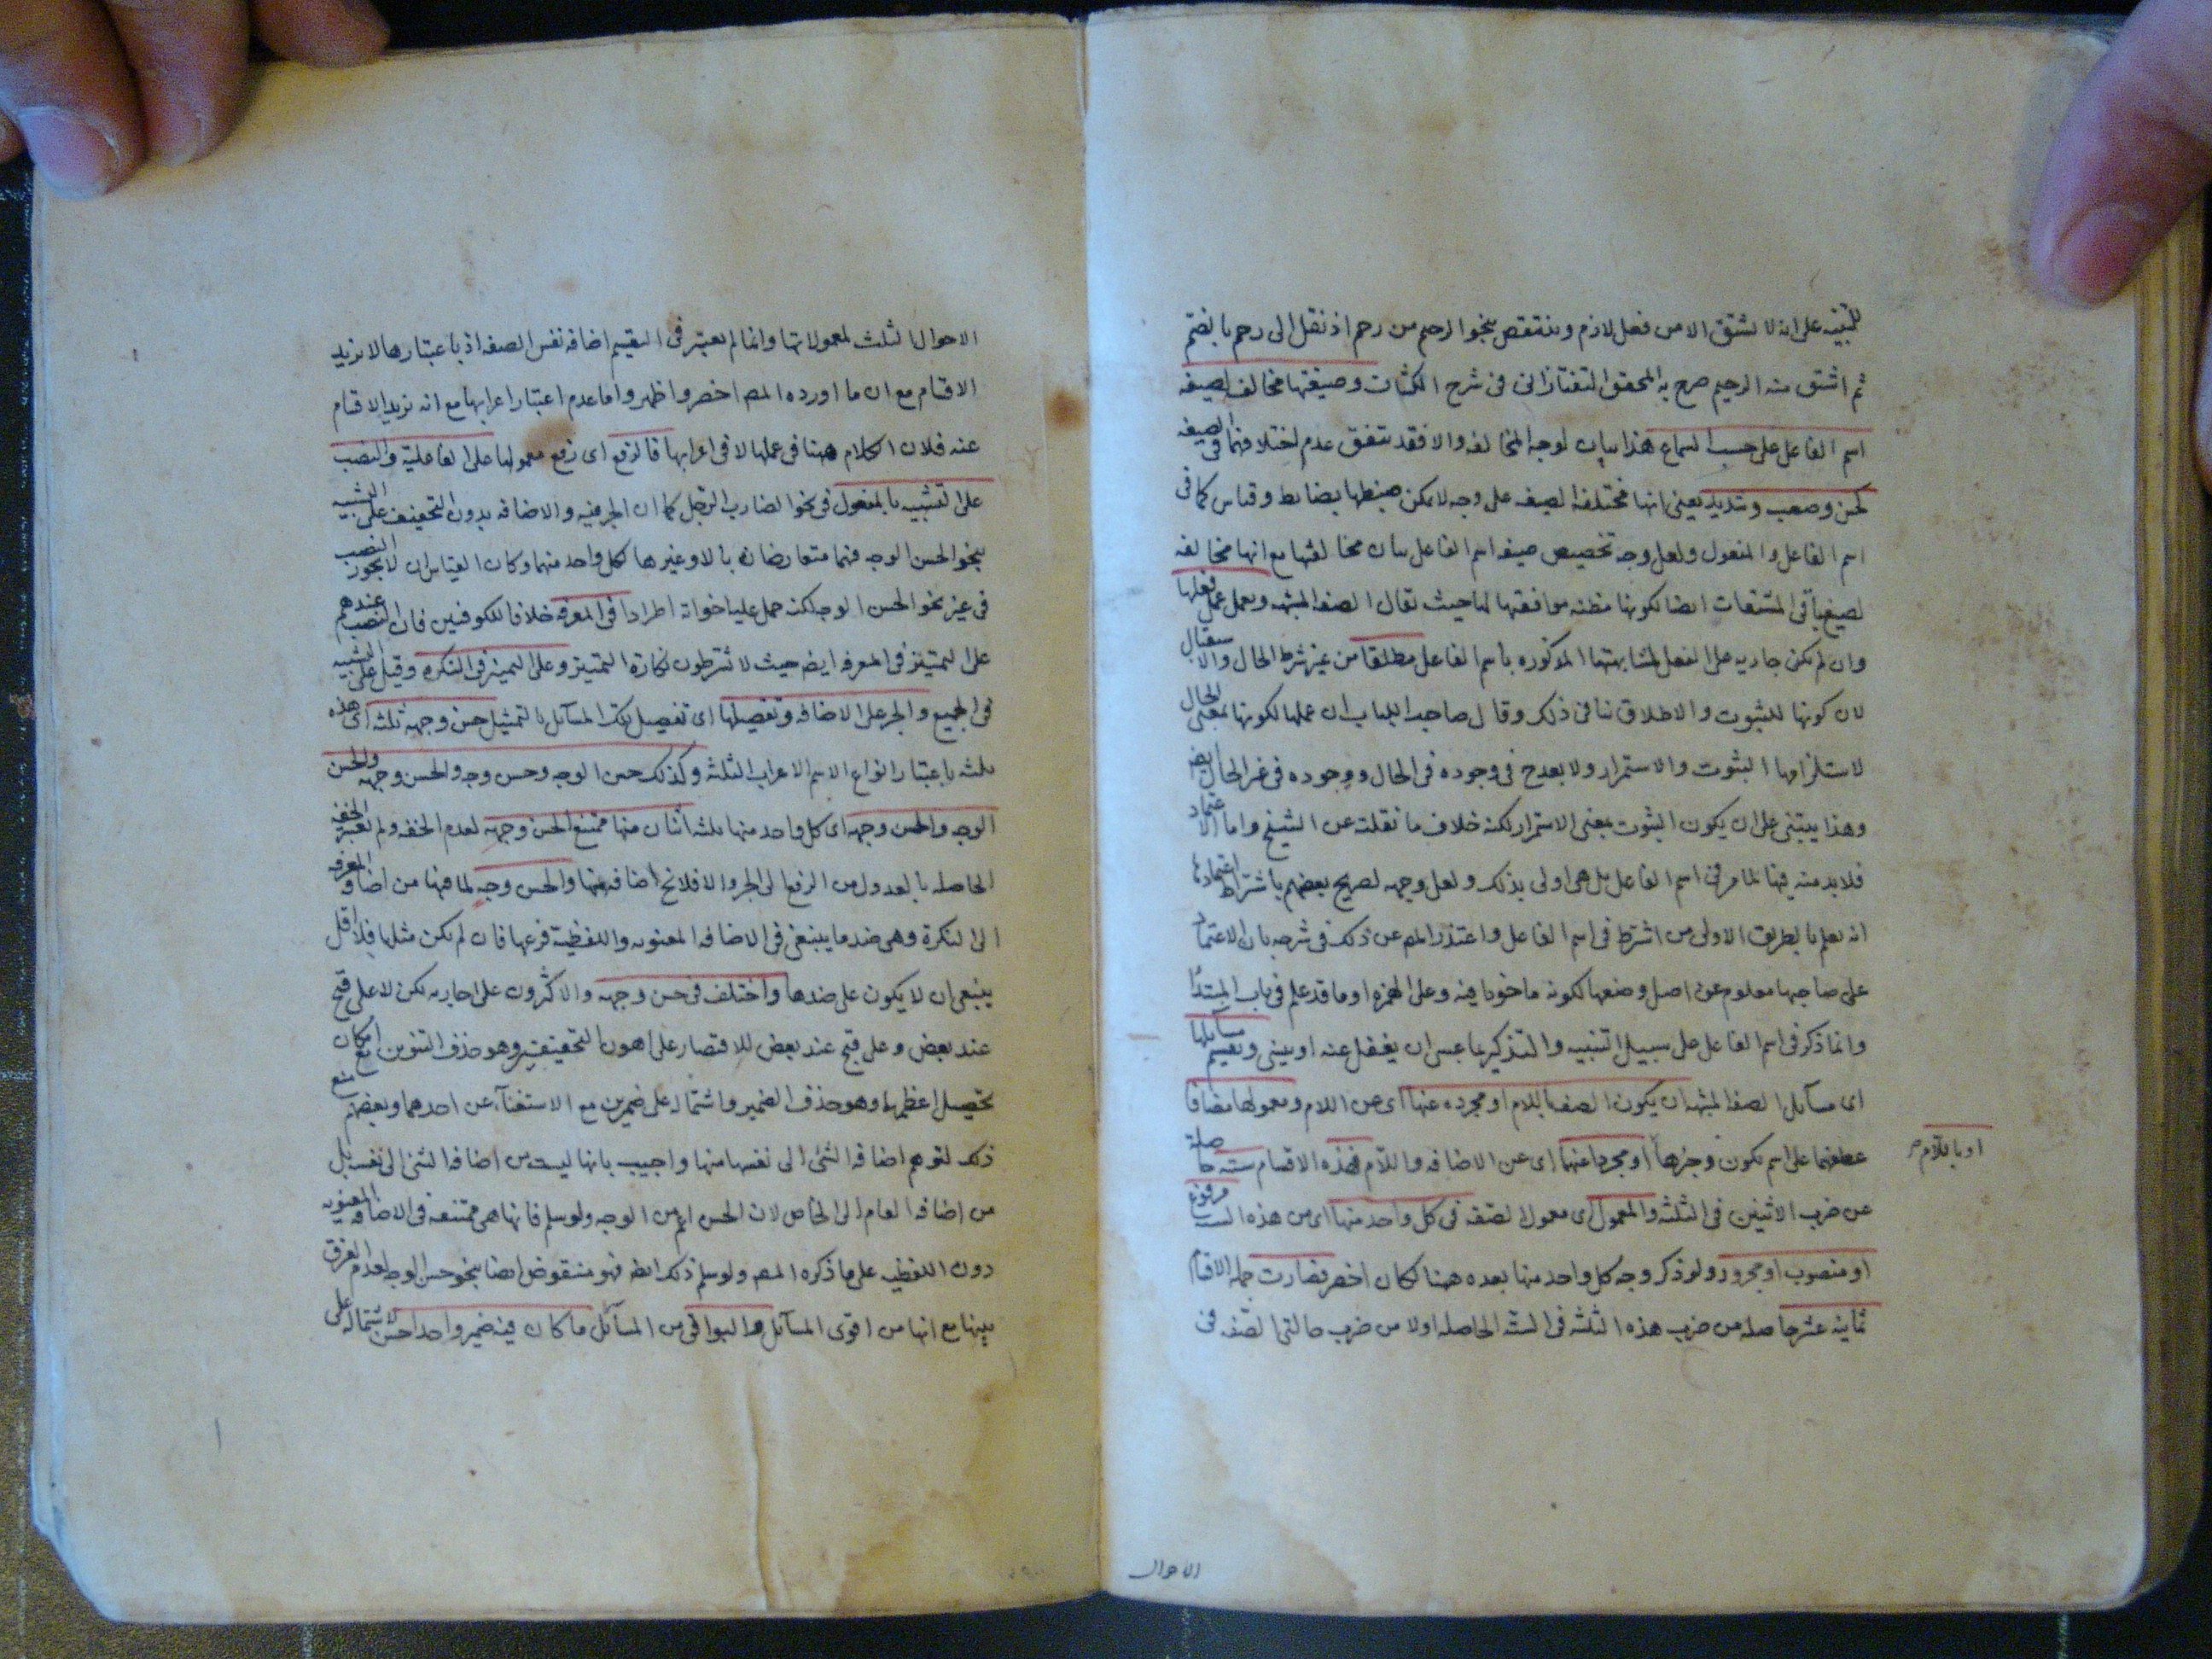 للتنبيه على انه لا يشتق الا من فعل لازم وينتقض بنحو الرحيم من رحم اذ نقل الى رحم بالضم
ثم اشتق منه الرحيم صرح به المحقق التفتازانى فى شرح الكشاف وصيغتها مخالفة لصيغة
اسم الفاعل على حسب السماع هذا بيان لوجه المخالفة والا فقد يتفق عدم اختلافهما فى الصيغة
كحسن وصعب وشديد يعنى انها مختلفة الصيغة على وجه لا يمكن ضبطها بضابط وقياس كما فى
اسم الفاعل والمفعول ولعل وجه تخصيص صيغة اسم الفاعل ببيان مخالفتها مع انها مخالفة
لصيغ باقى المشتقات ايضا لكونها مظنة موافقتها لها حيث يقال الصفة المشبهة وتعمل عمل فعلها
وان لم تكن جارية على الفعل لمشابهتها المذكورة باسم الفاعل مطلقا من غير شرط الحال والاستقبال
لان كونها للثبوت والاطلاق ينافى ذلك وقال صاحب اللباب ان عملها لكونها بمعنى الحال
لاستلزامها الثبوت والاستمرار ولا يقدح فى وجوده فى الحال ووجوده فى غير الحال ايضا
وهذا يبتنى على ان يكون الثبوت بمعنى الاستمرار لكنه خلاف ما نقلته عن الشيخ واما الاعتماد
فلا بد منه فيها لما مر فى اسم الفاعل بل هى اولى بذلك ولعل وجهه تصريح بعضهم باشتراط اعتمادها
انه يعلم بالطريق الاولى من اشترط فى اسم الفاعل واعتذر المصـ عن ذلك فى شرحه بان الاعتماد
على صاحبها معلوم عن اصل وضعها لكونه ماخوذا فيه وعلى الهمزة او ما قد علم فى باب المبتدأ
وانما ذكر فى اسم الفاعل على سبيل التنبيه والتذكير عما عسى ان يغفل عنه او ينسى وتقسيم مسائلها
اى مسائل الصفة المشبهة ان يكون الصفة باللام او مجردة عنها اى عن اللام ومعمولها مضافا
او باللام صح
عطفهما على اسم يكون وخبرها او مجردا عنهما اى عن الاضافة واللام فهذه الاقسام ستة حاصلة
من ضرب الاثنين فى الثلثة والمعمول اى معمول الصفة فى كل واحد منها اى من هذه الست مرفوع
او منصوب او مجرور ولو ذكر وجه كل واحد منها بعده هنا لكان اخصر فصارت جملة الاقسام
ثمانية عشر حاصلة من ضرب هذه الثلثة فى الستة الحاصلة اولا من ضرب حالتى الصفة فى
الاحوال
الاحوال الثلث لمعمولاتها وانما لم يعتبر فى التقسيم اضافة نفس الصفة اذ باعتبارها لا تزيد
الاقسام مع ان ما اورده المصـ اخصر واظهر واما عدم اعتبار اعرابها مع انه يزيد الاقسام
عنه فلان الكلام هنا فى عملها لا فى اعرابها فالرفع اى رفع معمولها على الفاعلية والنصب
على التشبيه بالمفعول فى نحو الضارب الرجل كما ان الجر فيه والاضافة بدون التخفيف على التشبيه
بنحو الحسن الوجه فهما متعارضان بالاوغيرها لكل واحد منهما وكان القياس ان لا يجوز النصب
فى غير نحو الحسن الوجه لكنه حمل عليه اخواته اطرادا فى المعرفة خلافا للكوفيين فان النصب عندهم
على التمييز فى المعرفة ايضـ حيث لا يشترطون نكارة التمييز وعلى التمييز فى النكرة وقيل على التشبيه
فى الجميع والجر على الاضافة وتفصيلها اى تفصيل تلك المسائل بالتمثيل حسن وجهه ثلثة اى هذه
ثلثة باعتبار انواع الاسم الاعراب الثلثة وكذلك حسن الوجه وحسن وجه والحسن وجهه والحسن
الوجه والحسن وجه اى كل واحد منها ثلثة اثنان منها ممتنع الحسن وجهه لعدم الخفة ولم تعتبر الخفة
الحاصلة بالعدول من الرفع الى الجر والا فلا تصح اضافة منها والحسن وجه لما فيها من اضافة المعرفة
الى النكرة وهى ضد ما ينبغى فى الاضافة المعنوية واللفظية فرعها فان لم تكن مثلها فلا اقل
ينبغى ان لا يكون على ضدها واختلف فى حسن وجهه والاكثرون على اجازته لكن لا على قبح
عند بعض وعلى قبح عند بعض للاقتصار على اهون التخفيفين وهو حذف التنوين مع امكان
تحصيل اعظمهما وهو حذف الضمير واشتماله على ضميرين مع الاستغناء عن احدهما وبعضهم منع
ذلك لتوهم اضافة الشئ الى نفسها منها واجيب بانها ليست من اضافة الشئ الى نفسه بل
من اضافة العام الى الخاص لان الحسن اعم من الوجه ولو سلم فانها هى ممتنعة فى الاضافة المعنوية
دون اللفظية على ما ذكره المصـ ولو سلم ذلك ايضـ فهو منقوض ايضا بنحو حسن الوجه لعدم الفرق
بينها مع انها من اقوى المسائل والبواقى من المسائل ما كان فيه ضمير واحد احسن لاشتماله على